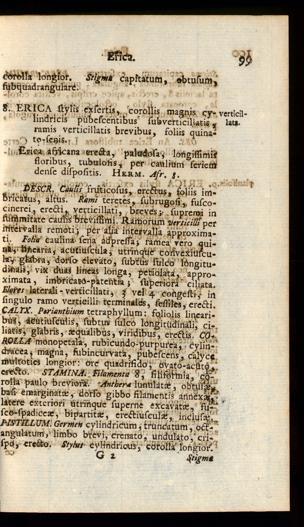 Erica. 99
corolla longior. Stigma capitatum, obtusum,
subquadrangulare.
8. ERICA stylis exsertis, corollis magnis cy- verticil-
lindricis pubescentibus subverticillatis, lata.
ramis verticillatis brevibus, foliis quina-
to-senis.
Erica africana erecta, paludosa, longissimis
floribus, tubulosis, per caulium seriem
dense dispositis. HERM. Afr. 8.
DESCR. Caulis fruticosus, erectus, foliis im-
bricatus, altus. Rami teretes, subrugosi, fusco-
cinerei, erecti, verticillati, breves; supremi in
summitate caulis brevissimi. Ramorum verticilli per
intervalla remoti; per alia intervalla approxima-
ti. Folia caulina sena adpressa; ramea vero qui-
na, linearia, acutiuscula, utrinque convexiuscu-
la, glabra, dorso elevato, subtus sulco longitu-
dinali, vix duas lineas longa, petiolata, appro-
ximata, imbricato-patentia; superiora ciliata.
Flores laterali-verticillati, 3 vel 4 congesti, in
singulo ramo verticilli terminales, sessiles, erecti.
CALYX. Perianthium tetraphyllum: foliolis lineari-
bus, acutiusculis, subtus sulco longitudinali, ci-
liatis, glabris, æqualibus, viridibus, erectis. CO-
ROLLA monopetala, rubicundo-purpurea, cylin-
dracea, magna, subincurvata, pubescens, calyce
multoties longior: ore quadrifido, ovato-acuto,
erecto. STAMINA. Filamenta 8, filiformia, co-
rolla paulo breviora. Antheræ lunulatæ, obtusæ,
basi emarginatæ, dorso gibbo filamentis annexæ,
latere exteriori utrinque superne excavatæ, fu-
sco-spadiceæ, bipartitæ, erectiusculæ, inclusæ.
PISTILLUM. Germen cylindricum, truncatum, oct-
angulatum, limbo brevi, crenato, undulato, cri-
spo, erecto. Stylus cylindricus, corolla longior.
G 2 Stigma